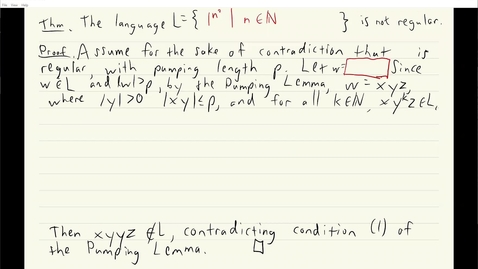 Thm. The language L={ 1^n² | n∈ℕ } is not regular.
Proof. Assume for the sake of contradiction that is
regular, with pumping length p. Let w= Since
w∈L and |w|>p, by the Pumping Lemma, w=xyz,
where |y|>0 |xy|≤p, and for all k∈ℕ, xy^kz∈L.
Then xyyz∉L, contradicting condition (1) of
the Pumping Lemma. □